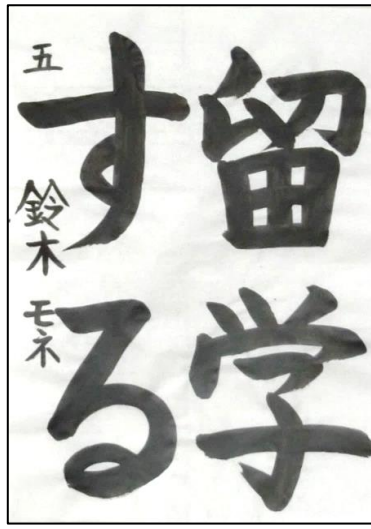 留学
する
五 鈴木 モネ